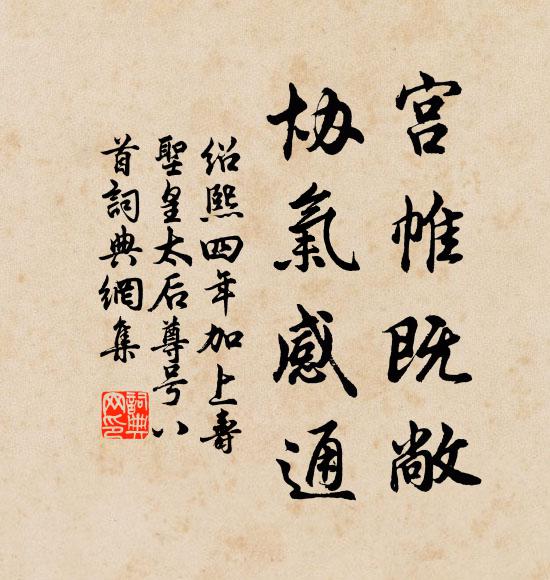 宫帷既敞
协氣感通
绍熙四年加上壽
聖皇太后尊号八
首詞典網集
詞典网印